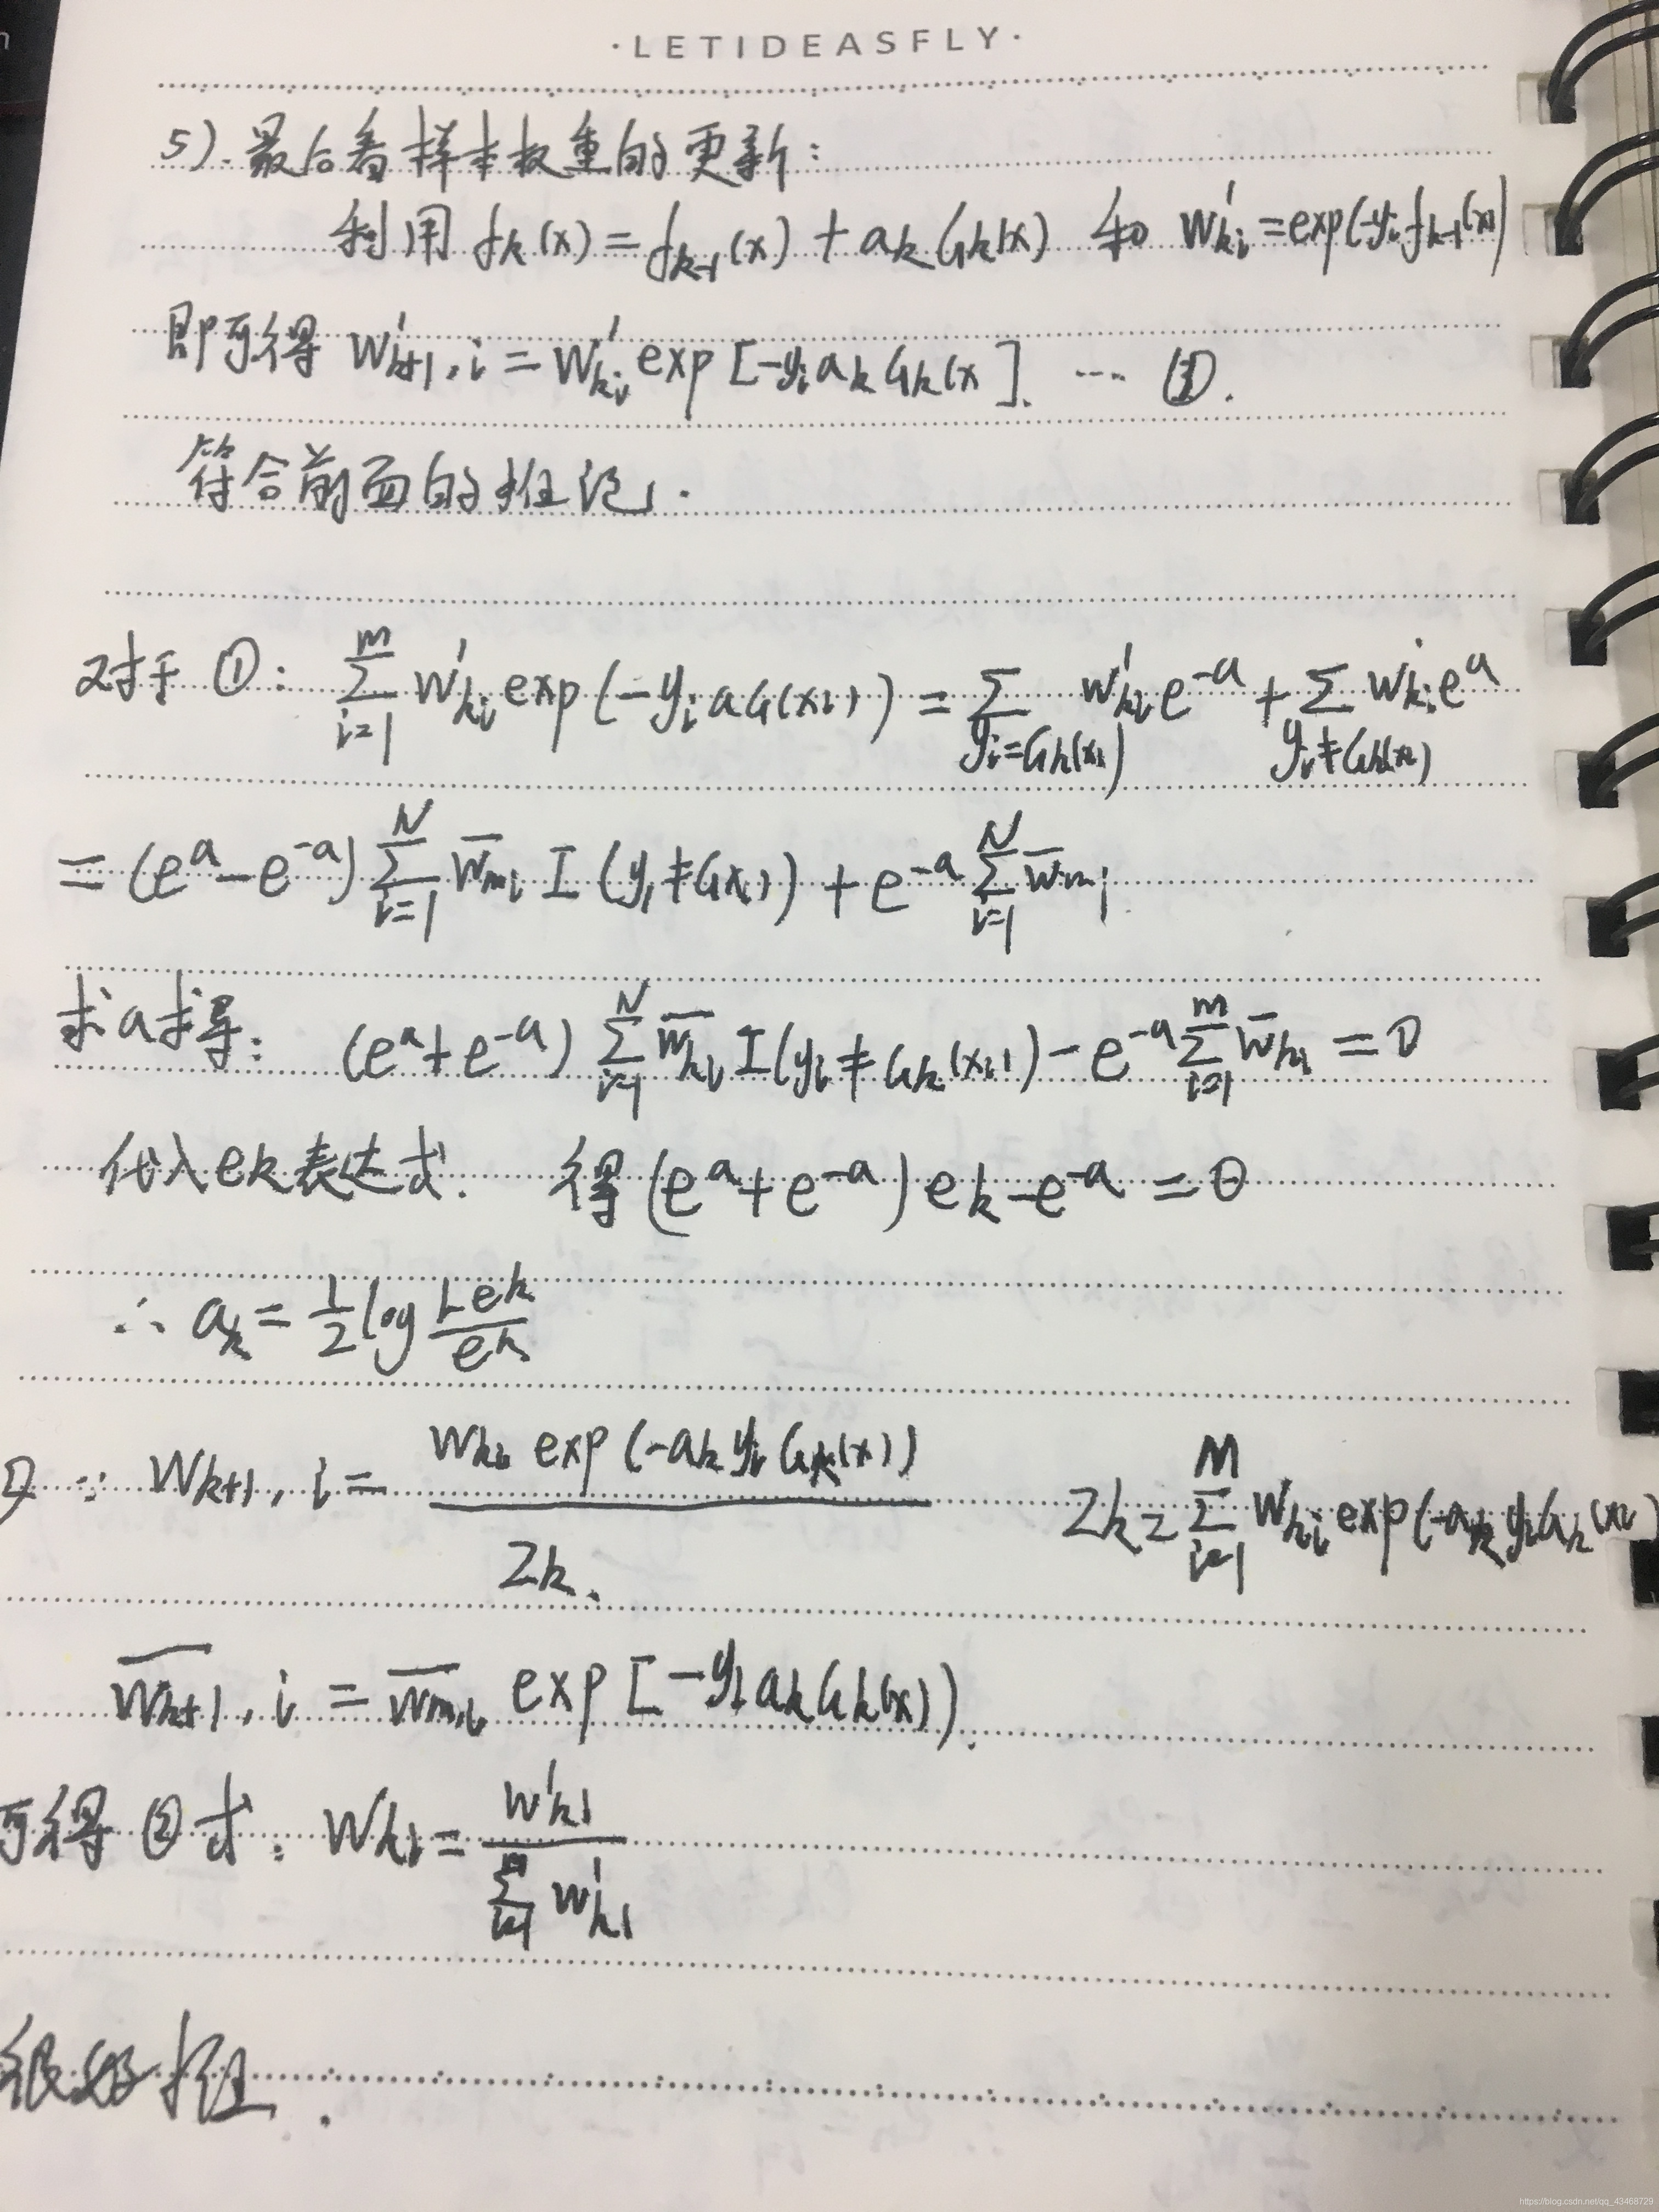 ·LETIDEASFLY·
5). 最后看样本权重的更新:
利用 fk(x) = fk-1(x) + ak Gk(x) 和 w'ki = exp(-yi fk-1(x)
即可得 w'k+1, i = w'ki exp [-yi ak Gk(x ]. ...
符合前面的推论.
对于 ①: Σ(i=1→m) w'ki exp(-yi a G(xi)) = Σ(yi=Gk(xi)) w'ki e^-a + Σ(yi≠Gk(xi)) w'ki e^a
= (e^a - e^-a) Σ(i=1→N) w̄mi I (yi ≠ G(xi)) + e^-a Σ(i=1→N) w̄mi
求a求导: (e^a + e^-a) Σ(i=1→N) w̄ki I(yi ≠ Gk(xi)) - e^-a Σ(i=1→m) w̄ki = 0
代入ek表达式. 得 (e^a + e^-a) ek - e^-a = 0
∴ ak = 1/2 log (1-ek)/ek
∵ wk+1, i = wki exp(-ak yi Gk(x)) / Zk. Zk = Σ(i=1→M) wki exp(-ak yi Gk(xi
w̄k+1, i = w̄m,i exp [-yi ak Gk(x)).
可得 ②式: wki = w'ki / Σ(i=1→m) w'ki
很好推.
https://blog.csdn.net/qq_43468729